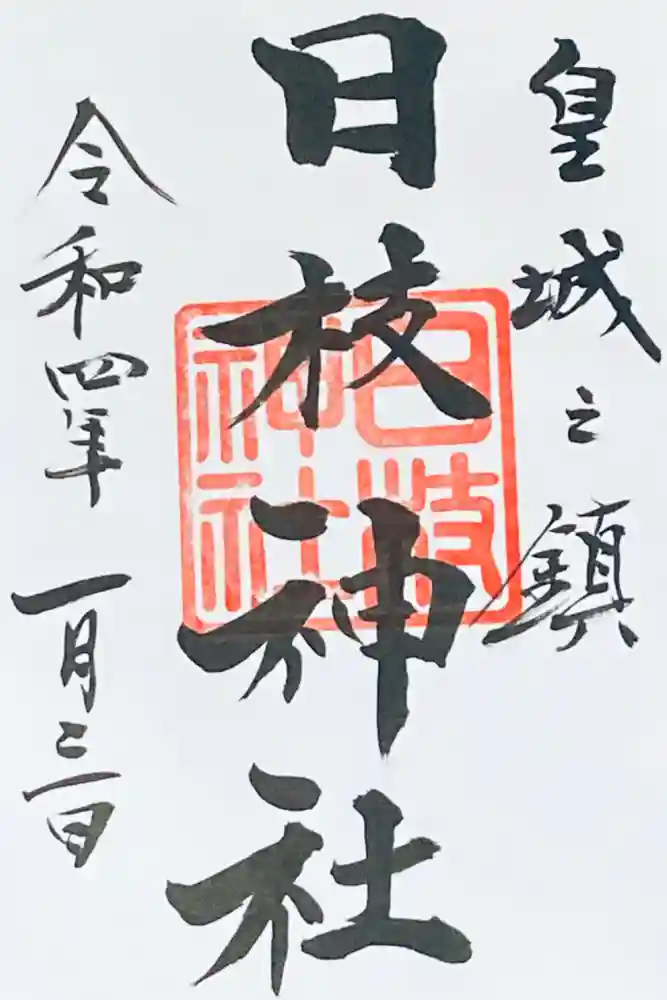 皇城之鎮
日枝神社
日枝神社
令和四年 一月三日